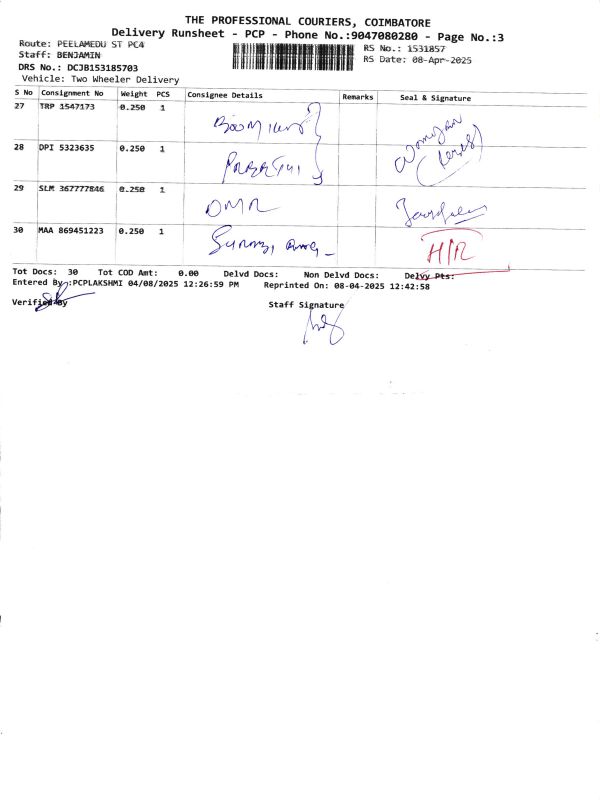 THE PROFESSIONAL COURIERS, COIMBATORE
Delivery Runsheet - PCP - Phone No.:9047080280 - Page No.:3
Route: PEELAMEDU ST PC4
Staff: BENJAMIN
DRS No.: DCJB153185703
Vehicle: Two Wheeler Delivery
RS No.: 1531857
RS Date: 08-Apr-2025
S No Consignment No Weight PCS Consignee Details Remarks Seal & Signature
27 TRP 1547173 0.250 1
28 DPI 5323635 0.250 1
29 SLM 367777846 0.250 1 DMR
30 MAA 869451223 0.250 1 H/R
Tot Docs: 30 Tot COD Amt: 0.00 Delvd Docs: Non Delvd Docs: Delvy Pts:
Entered By :PCPLAKSHMI 04/08/2025 12:26:59 PM Reprinted On: 08-04-2025 12:42:58
Verified By Staff Signature